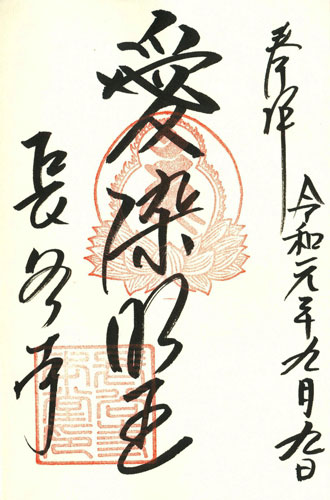 奉拝
令和元年九月九日
愛染明王
長谷寺